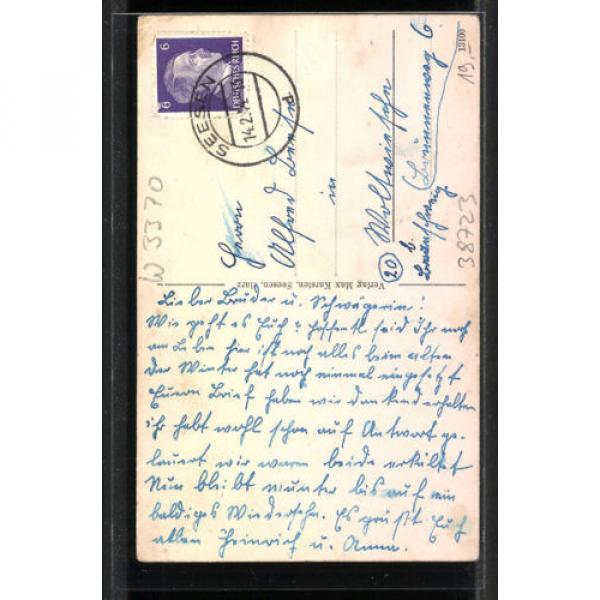 6
6
DEUTSCHES REICH
SEESEN
14.2.
d
13100
19.-
W 3370
38723
Herrn
Alfred
in
20
b.
Braunschweig
6
Verlag Max Karsten, Seesen, Harz
Lieber Bruder u. Schwägerin!
Wie geht es Euch? Hoffentl. seid Ihr noch
am Leben hier ist noch alles beim alten
der Winter hat noch einmal eingesetzt
Euern Brief haben wir dankend erhalten
ihr habt wohl schon auf Antwort ge-
lauert wir waren beide erkältet
Nun bleibt munter bis auf ein
baldiges Wiedersehn. Es grüßt Euch
allen Heinrich u. Anna.